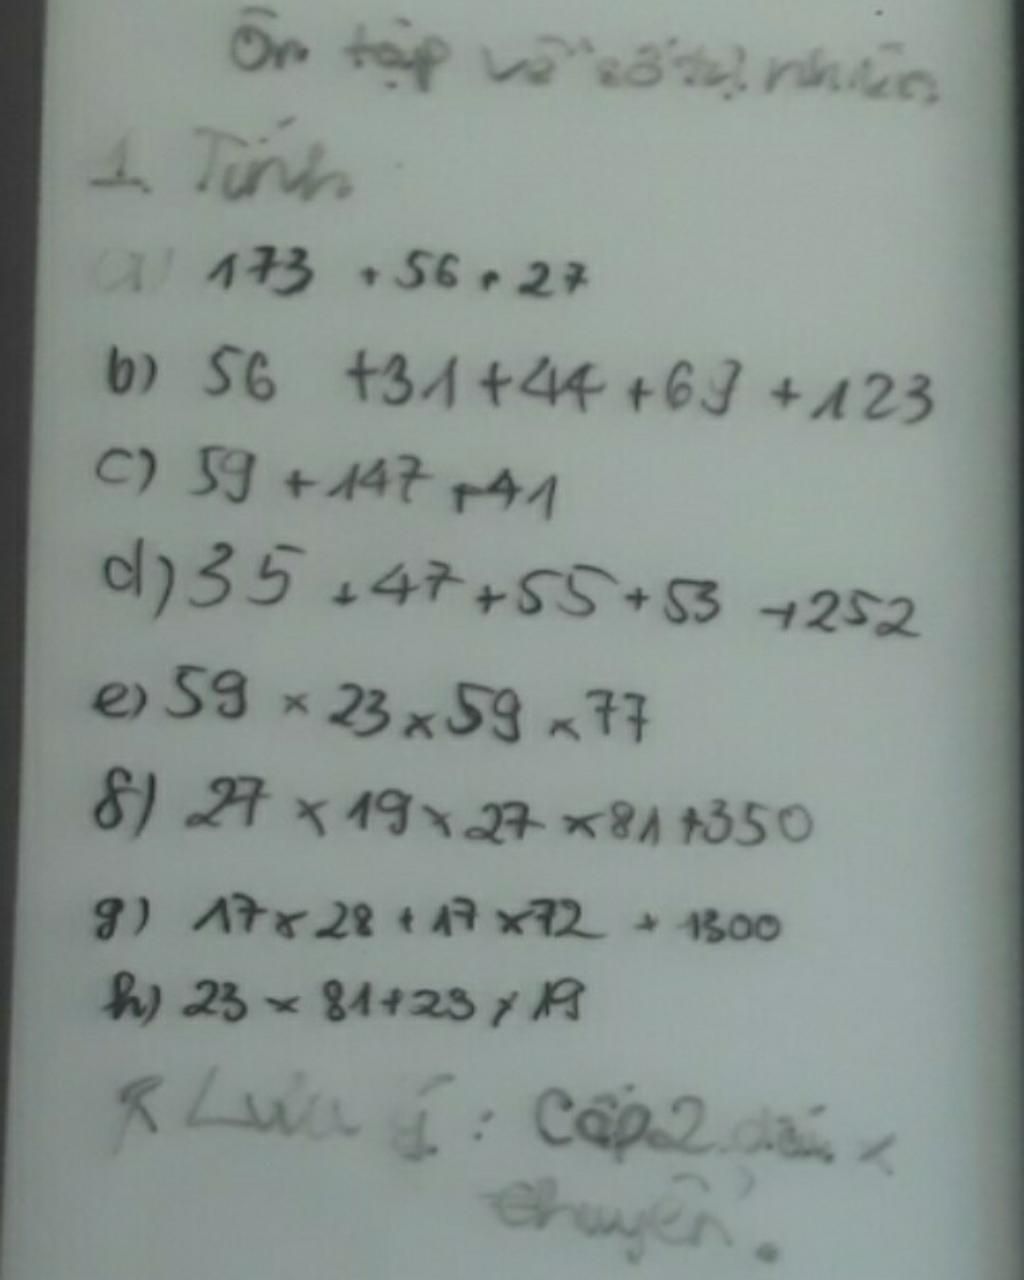 Ôn tập về số tự nhiên
1. Tính
a) 173 + 56 + 27
b) 56 + 31 + 44 + 69 + 123
c) 59 + 147 + 41
d) 35 + 47 + 55 + 53 + 252
e) 59 × 23 × 59 × 77
f) 27 × 19 × 27 × 81 + 350
g) 17 × 28 + 17 × 72 + 1300
h) 23 × 81 + 23 × 19
* Lưu ý : Cấp 2 dấu ×
chuyển.